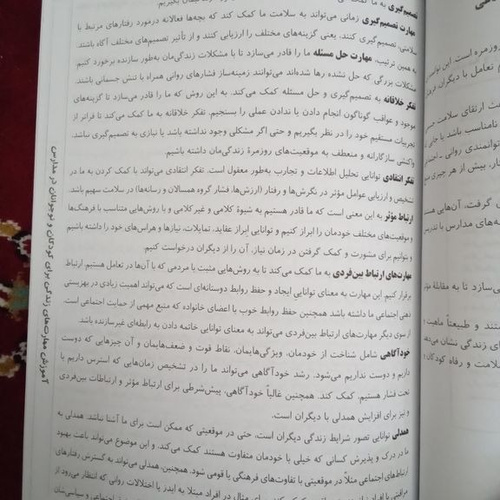 تصمیم‌گیری به ما
مهارت تصمیم‌گیری زمانی می‌تواند به سلامت ما کمک کند که بچه‌ها فعالانه درمورد رفتارهای مرتبط با
سلامتی، تصمیم‌گیری کنند، یعنی گزینه‌های مختلف را ارزیابی کنند و از تأثیر تصمیم‌های مختلف آگاه باشند.
به همین ترتیب، مهارت حل مسئله ما را قادر می‌سازد تا با مشکلات زندگی‌مان به‌طور سازنده برخورد کنیم
مشکلات بزرگی که حل نشده رها شده‌اند می‌توانند زمینه‌ساز فشارهای روانی همراه با تنش جسمانی باشند.
تفکر خلاقانه به تصمیم‌گیری و حل مسئله کمک می‌کند. به این روش که ما را قادر می‌سازد تا گزینه‌های
موجود و عواقب گوناگون انجام دادن یا ندادن عملی را بسنجیم. تفکر خلاقانه به ما کمک می‌کند تا فراتر از
تجربیات مستقیم خود را در نظر بگیریم و حتی اگر مشکلی وجود نداشته باشد یا نیازی به تصمیم‌گیری نباشد،
واکنشی سازگارانه و منعطف به موقعیت‌های روزمرهٔ زندگی‌مان داشته باشیم.
تفکر انتقادی توانایی تحلیل اطلاعات و تجارب به‌طور معقول است. تفکر انتقادی می‌تواند با کمک کردن به ما در
تشخیص و ارزیابی عوامل مؤثر در نگرش‌ها و رفتار (ارزش‌ها، فشار گروه همسالان و رسانه‌ها) در سلامت سهیم باشد.
ارتباط مؤثر به این معنی است که ما قادر هستیم به شیوهٔ کلامی و غیرکلامی و با روش‌هایی متناسب با فرهنگ‌ها
و موقعیت‌های مختلف خودمان را ابراز کنیم و توانایی ابراز عقاید، تمایلات، نیازها و هراس‌های خود را داشته باشیم
و بتوانیم برای مشورت و کمک گرفتن در زمان نیاز، آن را از دیگران درخواست کنیم.
مهارت‌های ارتباط بین‌فردی به ما کمک می‌کند تا به روش‌هایی مثبت با مردمی که با آن‌ها در تعامل هستیم ارتباط
برقرار کنیم. این مهارت به معنای توانایی ایجاد و حفظ روابط دوستانه‌ای است که می‌تواند اهمیت زیادی در بهزیستی
ذهنی اجتماعی ما داشته باشد همچنین حفظ روابط خوب با اعضای خانواده که منبع مهمی از حمایت اجتماعی است.
از سوی دیگر مهارت‌های ارتباط بین‌فردی می‌تواند به معنای توانایی خاتمه دادن به رابطه‌ای غیرسازنده باشد.
خودآگاهی شامل شناخت از خودمان، ویژگی‌هایمان، نقاط قوت و ضعف‌هایمان و آن چیزهایی که دوست
داریم و دوست نداریم می‌شود. رشد خودآگاهی می‌تواند ما را در تشخیص زمان‌هایی که استرس داریم یا
تحت فشار هستیم، کمک کند. همچنین غالباً خودآگاهی، پیش‌شرطی برای ارتباط مؤثر و ارتباطات بین‌فردی
و نیز برای افزایش همدلی با دیگران است.
همدلی توانایی تصور شرایط زندگی دیگران است، حتی در موقعیتی که ممکن است برای ما آشنا نباشد. همدلی به
ما در درک و پذیرش کسانی که خیلی با خودمان متفاوت هستند کمک می‌کند. و این موضوع می‌تواند باعث بهبود
ارتباط‌های اجتماعی مثلاً در موقعیتی با تفاوت‌های فرهنگی یا قومی شود. همچنین، همدلی می‌تواند به گسترش رفتارهای
آموزش مهارت‌های زندگی برای کودکان و نوجوانان در مدارس